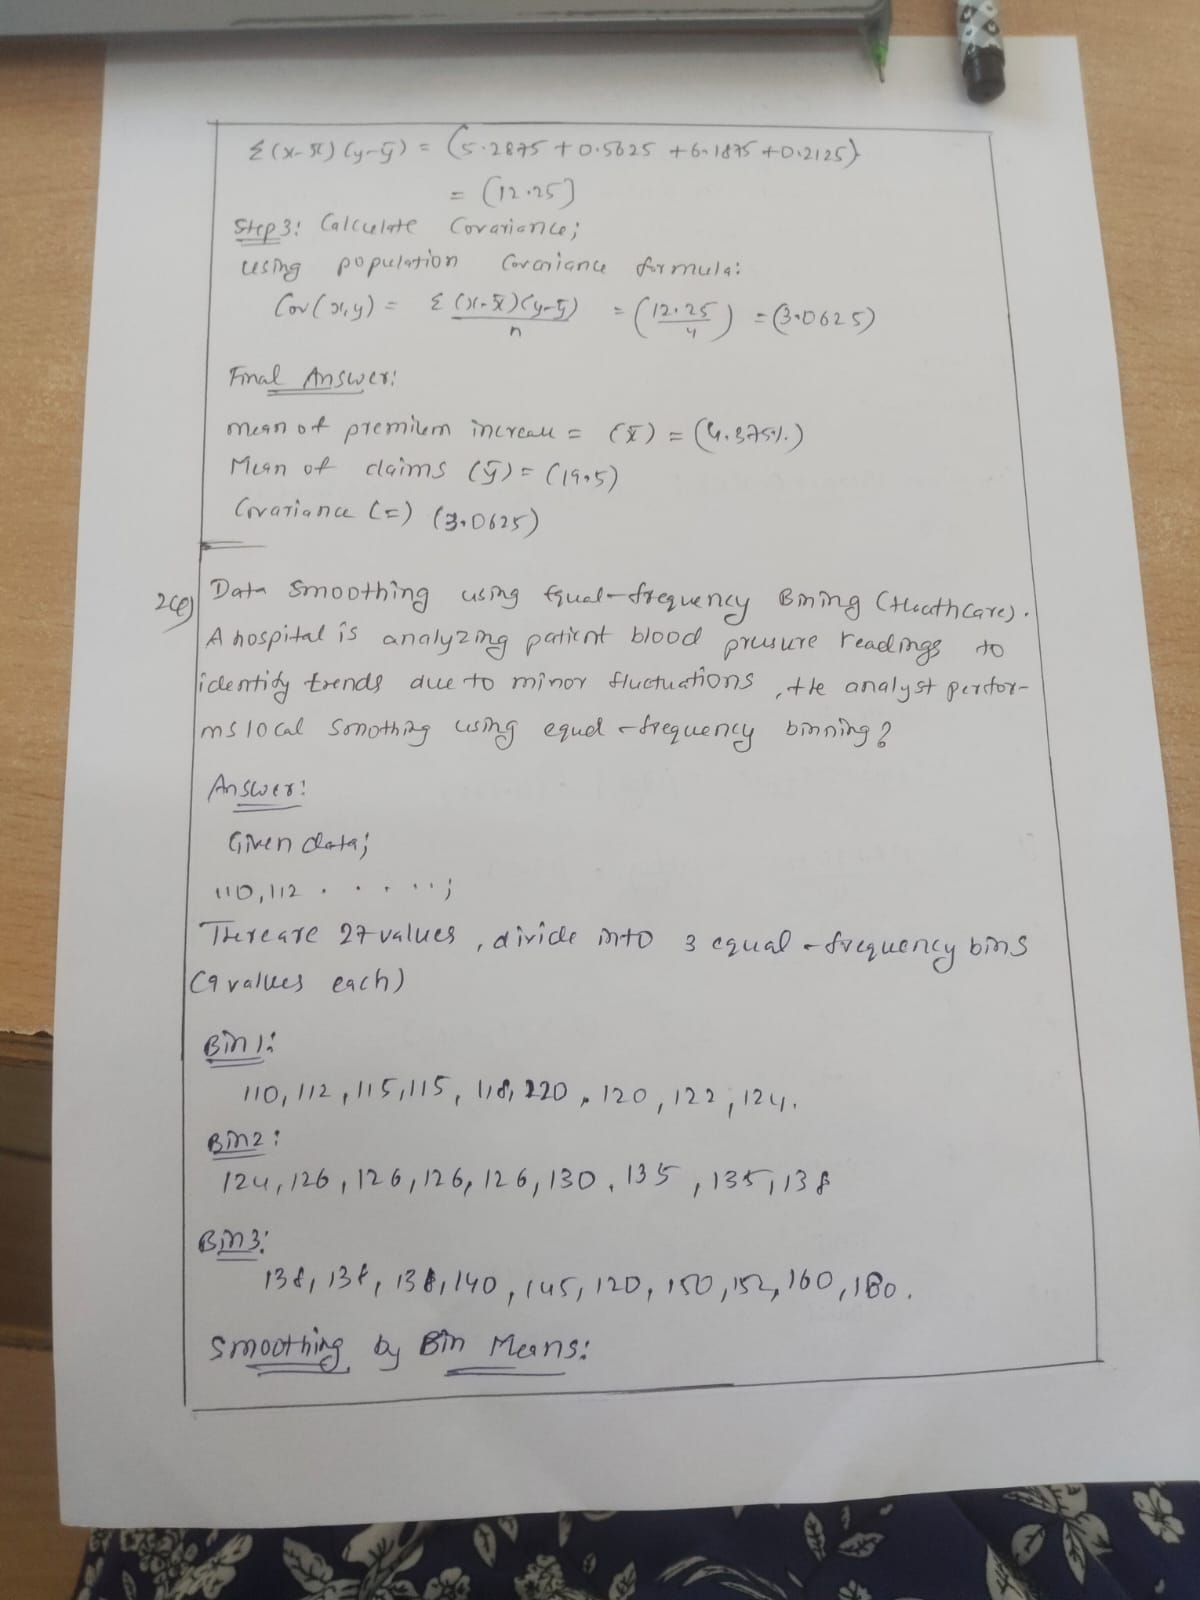 Σ(x-x̄)(y-ȳ) = (5.2875 + 0.5625 + 6.1875 + 0.2125)
= (12.25)
Step 3: Calculate Covariance;
using population Covariance formula:
Cov(x,y) = Σ(x-x̄)(y-ȳ)/n = (12.25/4) = (3.0625)
Final Answer:
mean of premium increase = (x̄) = (4.375%)
Mean of claims (ȳ) = (19.5)
Covariance (=) (3.0625)
2(e) Data Smoothing using Equal-frequency Bining (Heathcare).
A hospital is analyzing patient blood pressure readings to
identify trends due to minor fluctuations, the analyst perfor-
ms local Smothing using equal-frequency binning?
Answer:
Given data;
110, 112 . . . . . ;
There are 27 values, divide into 3 equal-frequency bins
(9 values each)
Bin 1:
110, 112, 115, 115, 118, 220, 120, 122, 124.
Bin 2:
124, 126, 126, 126, 126, 130, 135, 135, 138
Bin 3:
138, 138, 138, 140, 145, 120, 150, 152, 160, 180.
Smoothing by Bin Means: